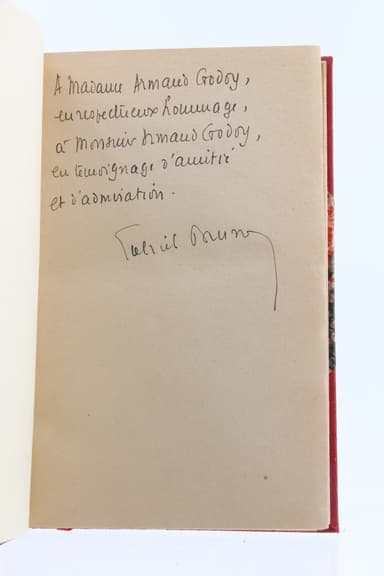 A Madame Armand Godoy,
en respectueux hommage,
à Monsieur Armand Godoy,
en témoignage d'amitié
et d'admiration.
Gabriel Brunet